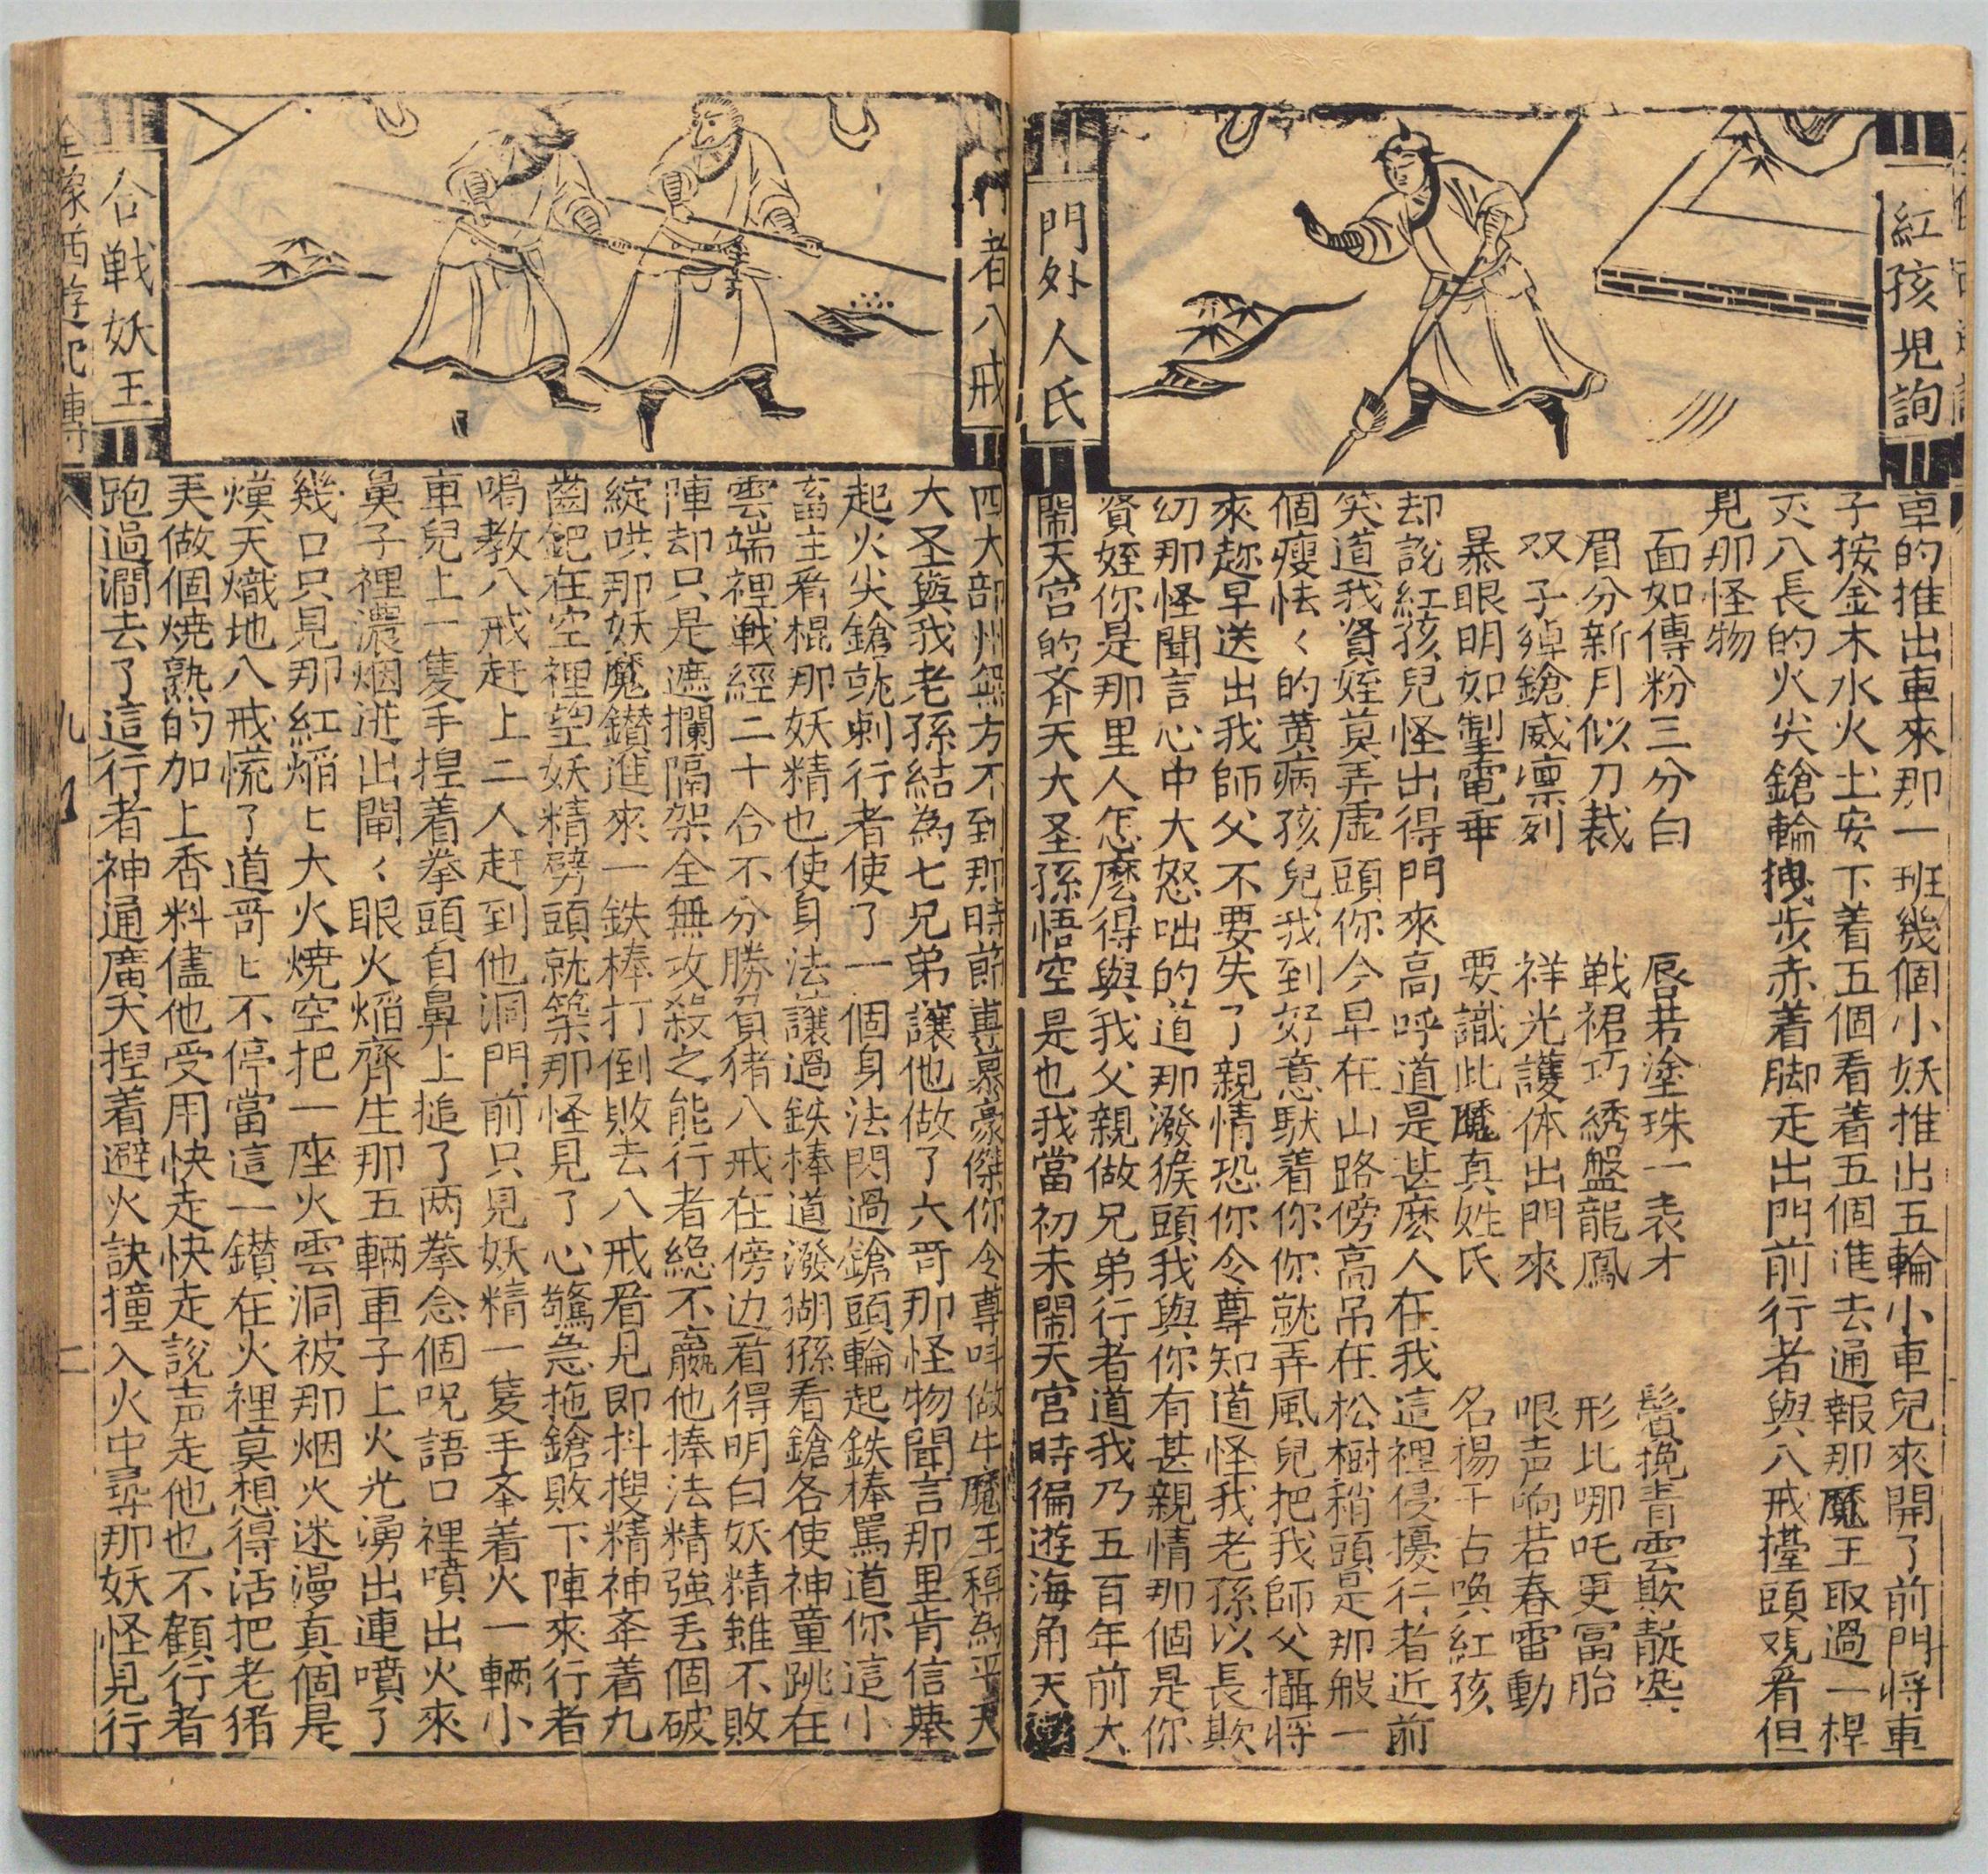 紅孩児詢
門外人氏
車的推出車來那一班幾個小妖推出五輪小車兒來開了前門将車
子按金木水火土安下着五個看着五個進去通報那魔王取過一桿
丈八長的火尖鎗輪拽步赤着脚走出門前行者與八戒擡頭观看但
見那怪物
面如傳粉三分白　唇若塗珠一表才　鬢挽青雲欺靛染
眉分新月似刀裁　戦裙巧綉盤龍鳳　形比哪吒更富胎
双手綽鎗威凛列　祥光護体出門來　哏声响若春雷動
暴眼明如掣電乖　要識此魔真姓氏　名揚千占喚紅孩
却說紅孩兒怪出得門來高呼道是甚麽人在我這裡侵擾行者近前
笑道我賢姪莫弄虚頭你今早在山路傍高吊在松樹稍頭是那般一
個瘦怯〻的黄病孩兒我到好意馱着你你就弄風兒把我師父攝将
來趂早送出我師父不要失了親情恐你令尊知道怪我老孫以長欺
幼那怪聞言心中大怒咄的道那潑猴頭我與你有甚親情那個是你
賢姪你是那里人怎麽得與我父親做兄弟行者道我乃五百年前大
鬧天宫的斉天大圣孫悟空是也我當初未鬧天宫時徧遊海角天涯
行者八戒
合戦妖王
四大部州無方不到那時節專慕豪傑你令尊呌做牛魔王稱為平天
大圣與我老孫結為七兄弟讓他做了六哥那怪物聞言那里肯信舉
起火尖鎗就刺行者使了一個身法閃過鎗頭輪起鉄棒罵道你這小
畜生看棍那妖精也使身法讓過鉄棒道潑猢猻看鎗各使神童跳在
雲端裡戦經二十合不分勝負猪八戒在傍边看得明白妖精雖不敗
陣却只是遮攔隔架全無攻殺之能行者総不赢他捧法精強丢個破
綻哄那妖魔鑚進來一鉄棒打倒敗去八戒看見即抖搜精神夲着九
齒鈀在空裡望妖精劈頭就築那怪見了心驚急拖鎗敗下陣來行者
喝教八戒赶上二人赶到他洞門前只見妖精一隻手夲着火一輛小
車兒上一隻手揑着拳頭自鼻上搥了两拳念個呪語口裡噴出火來
鼻子裡濃烟迸出閘〻眼火焰齊生那五輛車子上火光湧出連噴了
幾口只見那紅焰匕大火燒空把一座火雲洞被那烟火迷漫真個是
熯天熾地八戒慌了道哥匕不停當這一鑚在火裡莫想得活把老猪
美做個燒熟的加上香料儘他受用快走快走說声走他也不顧行者
跑過澗去了這行者神通廣大揑着避火訣撞入火中尋那妖怪見行
全像西遊記傳
九
二